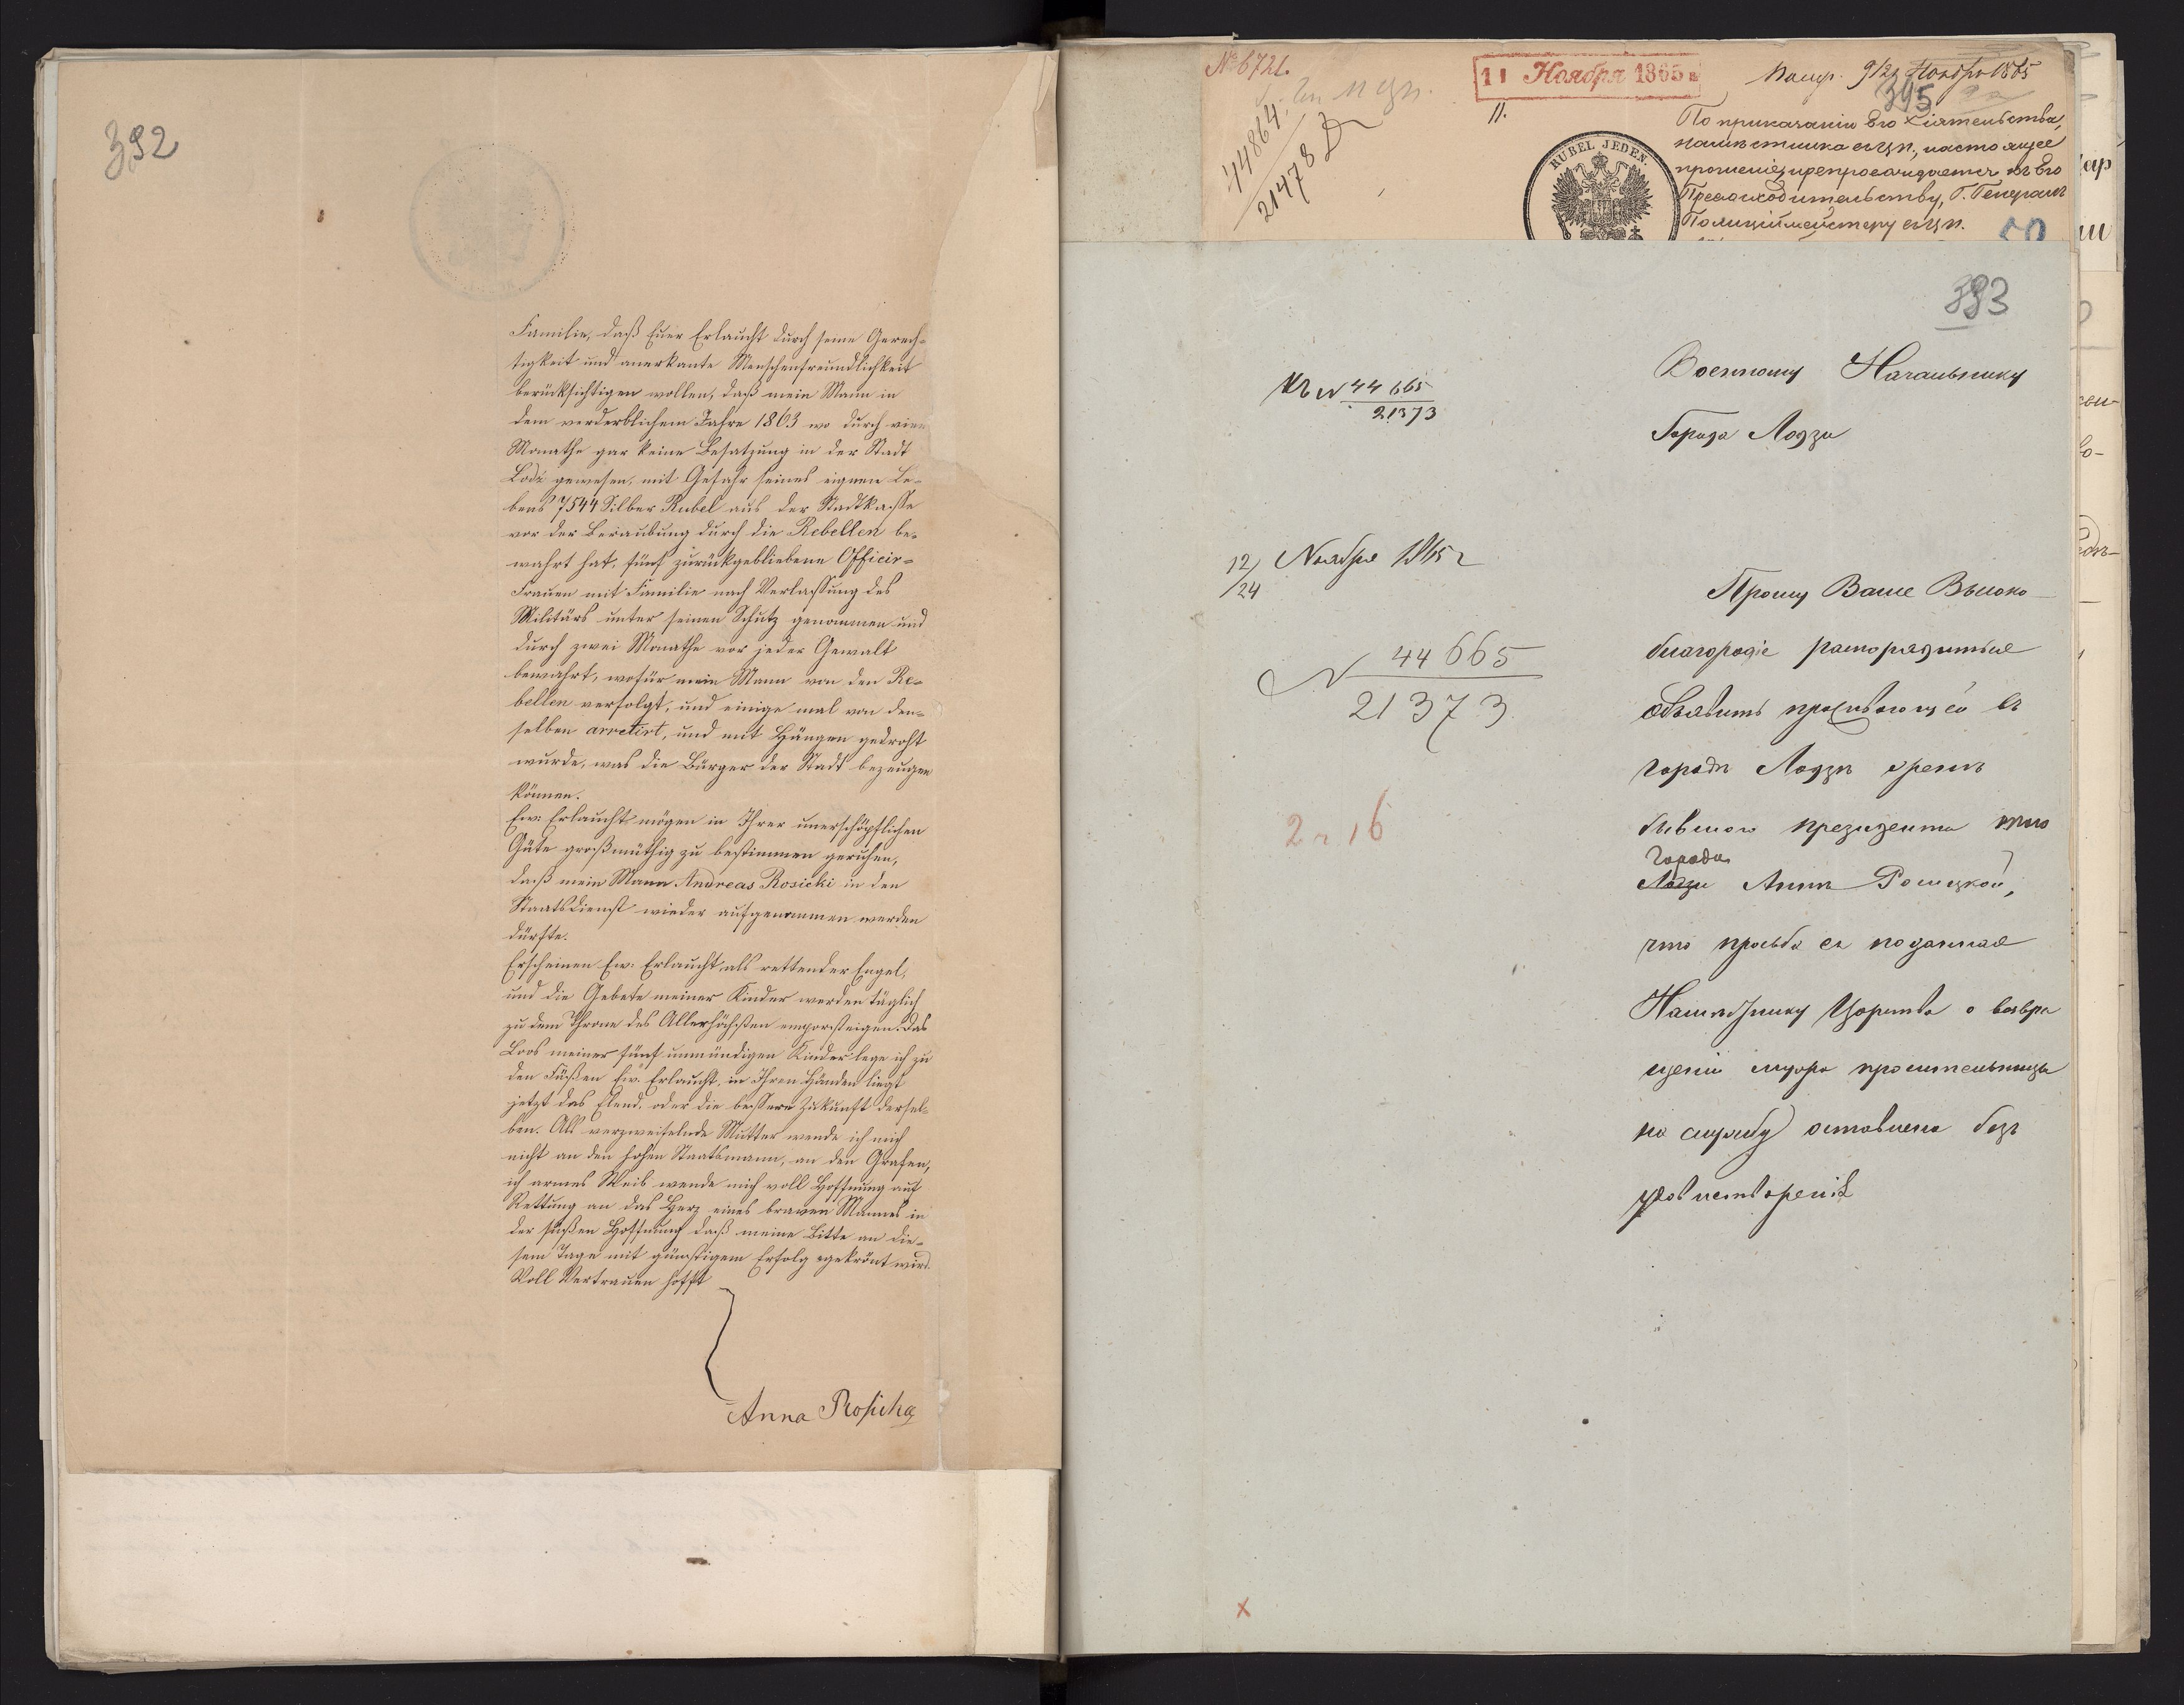 392
Familie, daß Euer Erlaucht durch seine Gerech-
tigkeit und anerkante Menschenfreundlichkeit
berücksichtigen wollen, daß mein Mann in
dem verderblichem Jahre 1863 wo durch vier
Monathe gar keine Besatzung in der Stadt
Lodz gewesen, mit Gefahr seines eignen Le-
bens 7544 Silber Rubel aus der Stadtkasse
vor der Beraubung durch die Rebellen be-
wahrt hat, fünf zurückgebliebene Officir-
Frauen mit Familie nach Verlassung des
Militärs unter seinen Schutz genommen und
durch zwei Monathe vor jeder Gewalt
bewahrt, wofür mein Mann von den Re-
bellen verfolgt, und einige mal von den-
selben arretirt, und mit Hängen gedroht
wurde, was die Bürger der Stadt bezeugen
können.
Ew: Erlaucht mögen in Ihrer unerschöpflichen
Güte großmüthig zu bestimmen geruhen,
daß mein Mann Andreas Rosicki in den
Staatsdienst wieder aufgenommen werden
dürfte.
Erscheinen Ew: Erlaucht als rettender Engel,
und die Gebete meiner Kinder werden täglich
zu dem Throne des Allerhöchsten emporsteigen. Das
Loos meiner fünf unmündigen Kinder lege ich zu
den Füßen Ew: Erlaucht, in Ihren Händen liegt
jetzt das Elend, oder die bessere Zukunft dersel-
ben. Als verzweifelnde Mutter wende ich mich
nicht an den hohen Staatsmann, an den Grafen,
ich armes Weib wende mich voll Hoffnung auf
Rettung an das Herz eines braven Mannes in
der süßen Hoffnung daß meine Bitte an die-
sem Tage mit günstigem Erfolg gekrönt wird.
Voll Vertrauen hofft
Anna Rosicka
№ 6721.
11 Ноября 1865
9/21 Ноября 1865
395
11.
44864
21478
RUBEL JEDEN.
По приказанію Его Сіятельства,
намѣстника въ ЦП., настоящее
прошеніе, препровождается къ Его
Превосходительству, Г. Генералъ
Полиціймейстеру въ ЦП.
50
393
Къ № 44 665
21373
Военному Начальнику
Города Лодзи
12/24 Ноября 1865 г
№ 44665
21373
Прошу Ваше Высоко-
благородіе распорядиться
объявить проживающей въ
городѣ Лодзѣ женѣ
бывшаго президента того
города
Лодзи Аннѣ Росицкой,
что просьба ея поданная
Намѣстнику Царства о возвра
щеніи мужа просительницы
на службу оставлена безъ
удовлетворенія